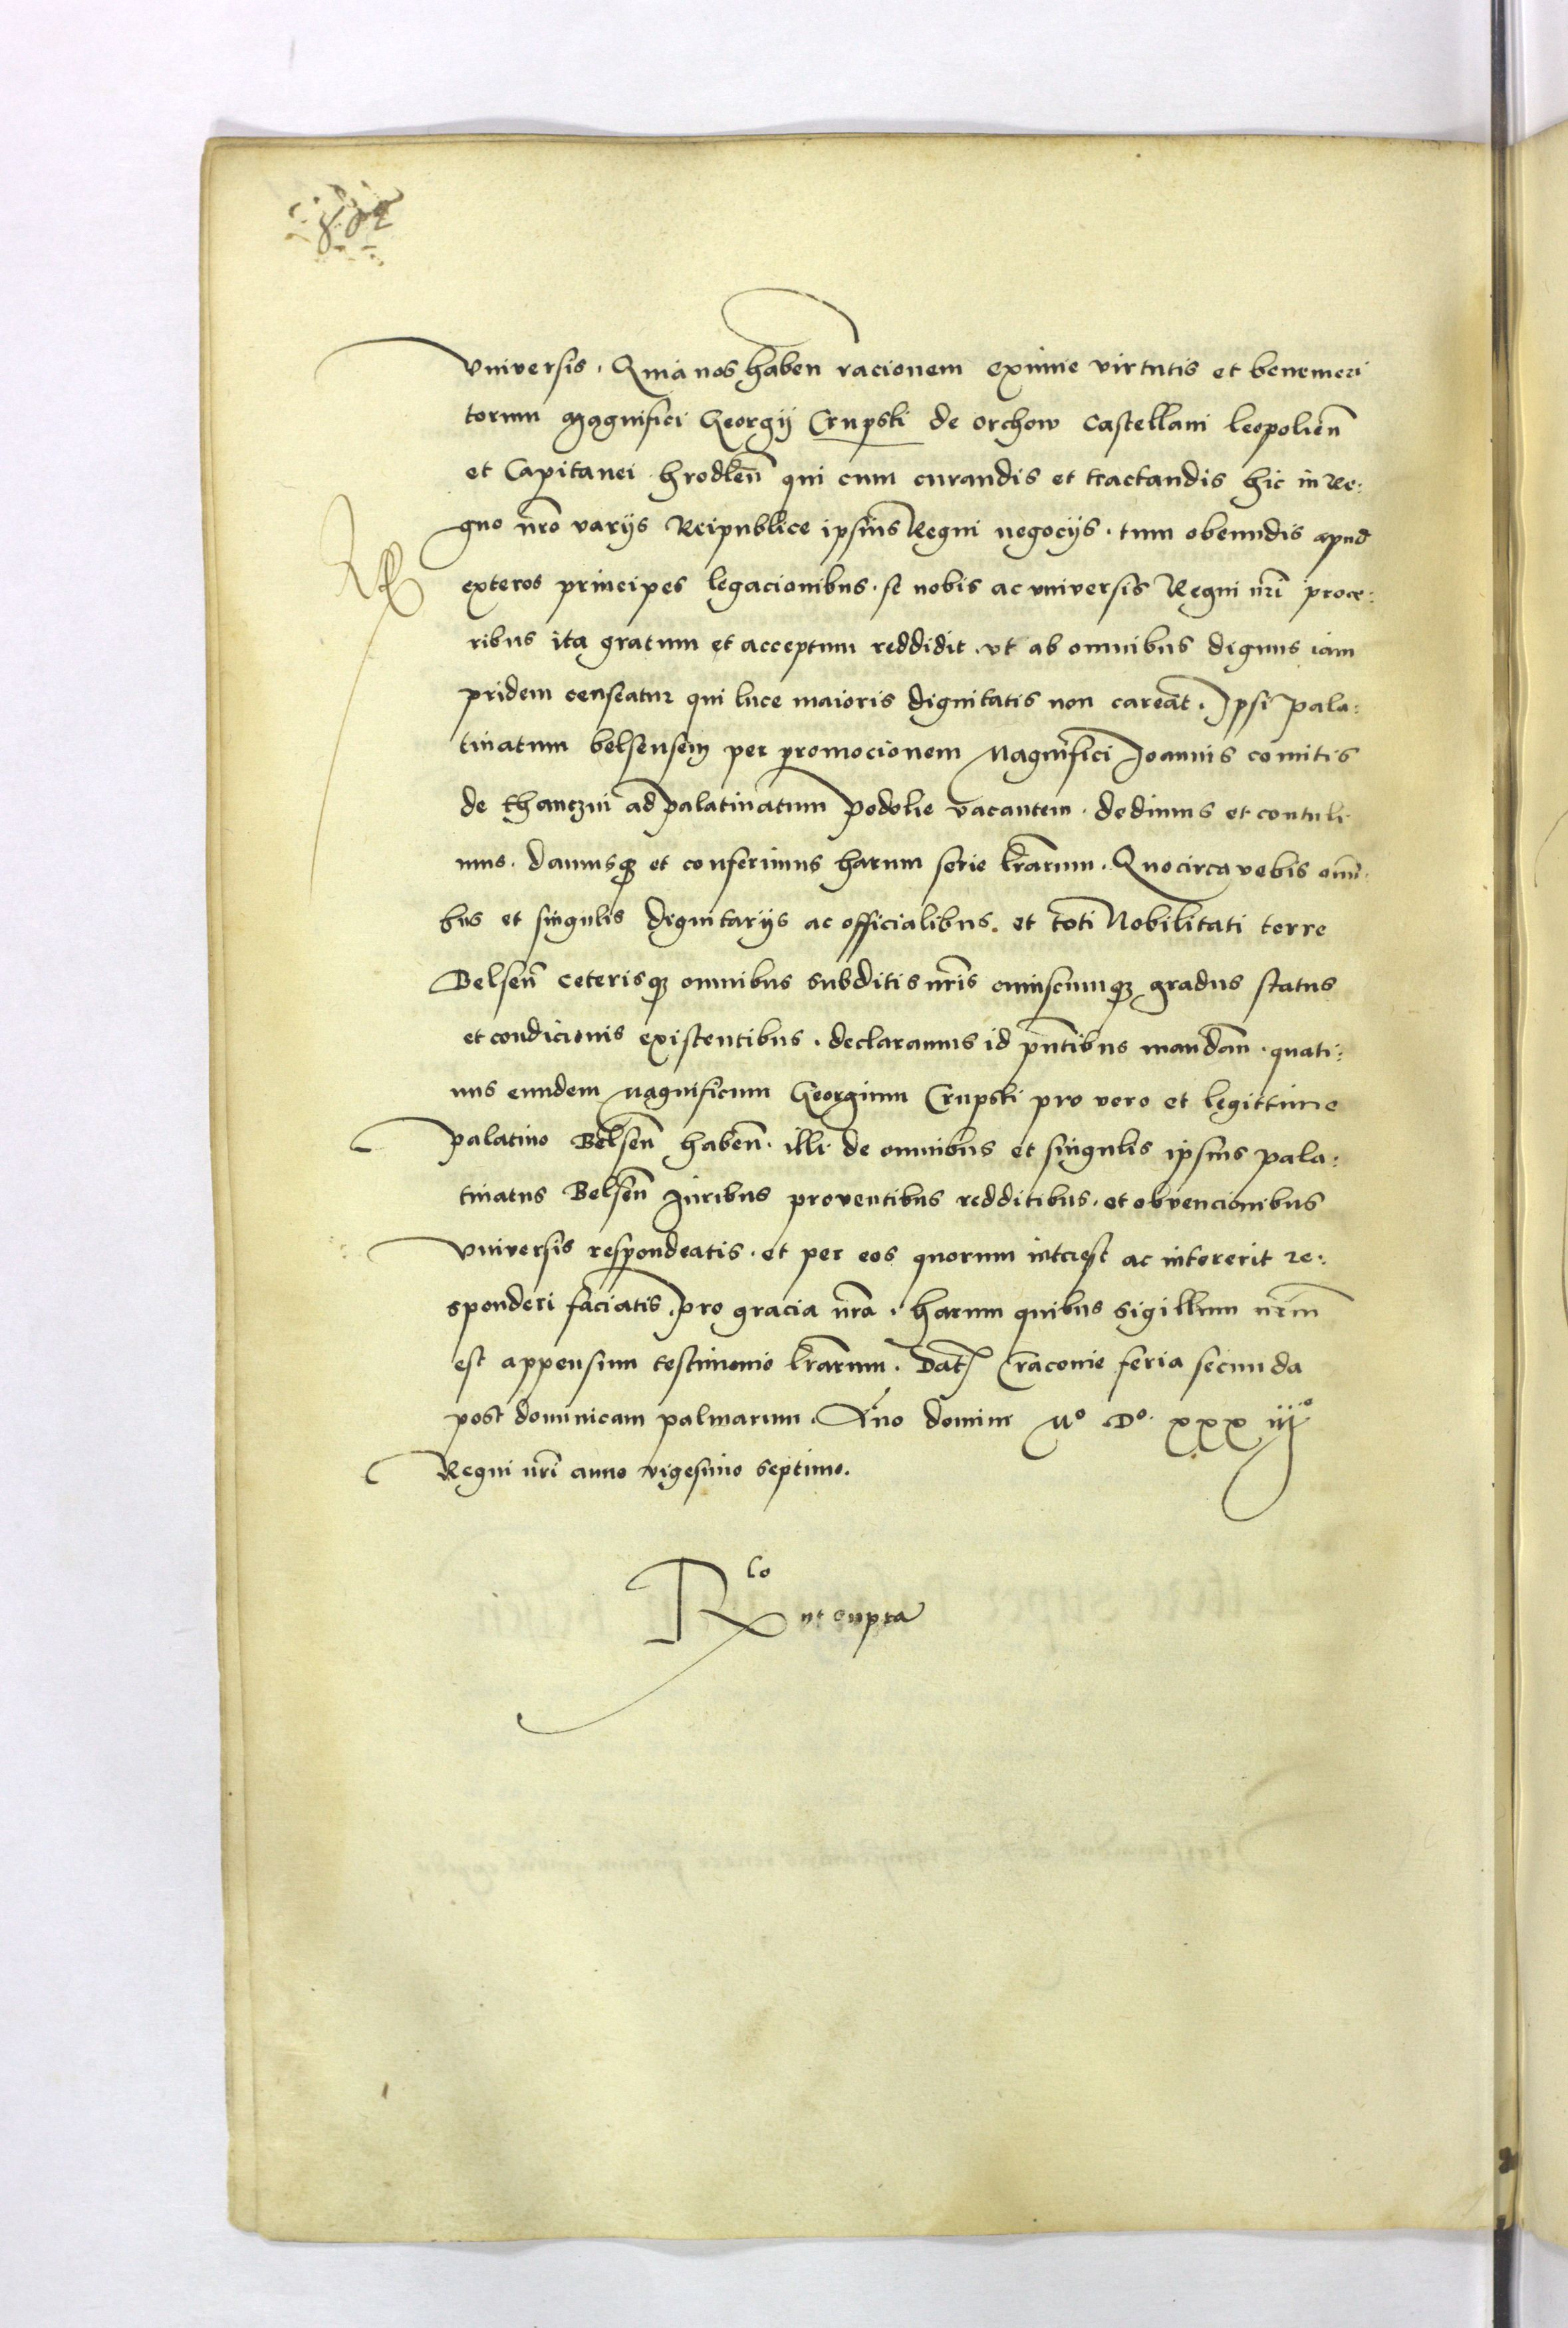 Vniversis. Quia nos haben racionem eximie virtutis et benemeri
torum Magnifici Georgij Crupski de orchow Castellani leopolien̄
et Capitanei hrodlen̄ qui cum curandis et tractandis hic in Re:
gno nr̄o varijs Reipublice ipsius Regni negocijs. tum obeundis apud
exteros principes legacionibus. se nobis ac vniversis Regni nr̄i proce:
ribus ita gratum et acceptum reddidit. vt ab omnibus dignus iam
pridem censeatur qui luce maioris dignitatis non careat. Ipsi pala:
tinatum belsensem per promocionem Magnifici Joannis comitis
de thanczin ad palatinatum podolie vacantem. dedimus et contuli
mus. damusq₃ et conferimus harum serie lr̄arum. Quocirca vobis omni
bus et singulis dignitarijs ac officialibus. et toti Nobilitati terre
Belsen̄ ceterisq₃ omnibus subditis nr̄is cuiuscumq₃ gradus status
et condicionis existentibus. declaramus id pn̄tibus mandan̄. quati:
nus eundem Magnificum Georgium Crupski pro vero et legittimo
palatino Belsen̄ haben̄. illi de omnibus et singulis ipsius pala:
tinatus Belsen̄ Juribus proventibus redditibus. et obvencionibus
Vniversis respondeatis. et per eos quorum interest ac intererit re:
sponderi faciatis. pro gracia nr̄a. harum quibus Sigillum nr̄m
est appensum testimonio lr̄arum. Dat̄ Cracovie feria secunda
post dominicam palmarum. An̄o domini Mº Dº. xxxiijº
Regni nr̄i anno vigesimo septimo.
Rlo vt supra